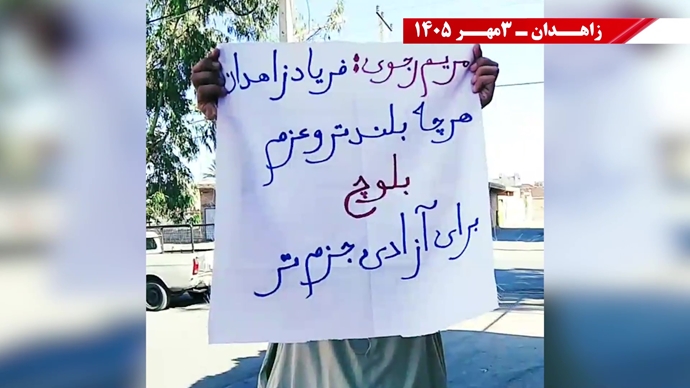 زاهدان ـ ۳مهر ۱۴۰۵
مریم رجوی: فریاد زاهدان
هرچه بلندتر و عزم
بلوچ
برای آزادی جزم تر